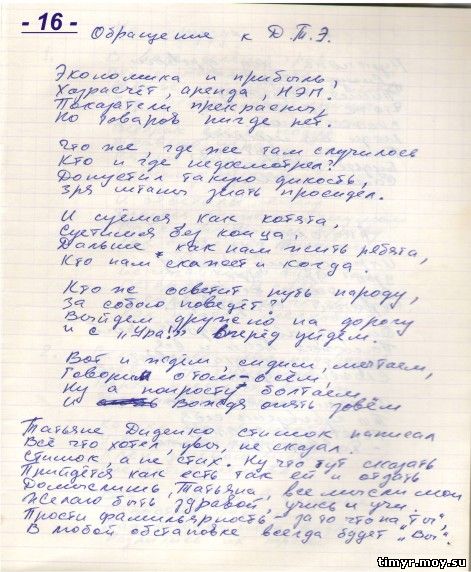 - 16 -
Обращение к Д.Т.Э.
Экономика и прибыль,
Хозрасчёт, аренда, НЭП.
Показатели прекрасны,
Но товаров нигде нет.
Что же, где же там случилось
Кто и где недосмотрел?
Допустил такую дикость,
Зря штаны знать просидел.
И суёмся, как котята,
Суетимся без конца.
Дальше как нам жить ребята,
Кто нам скажет и когда.
Кто же осветит путь народу,
За собою поведёт?
Выйдем дружно на дорогу
и с „Ура!" Вперёд уйдём.
Вот и ждём, сидим, мечтаем,
Говорим о том-о сём,
Ну а попросту болтаем,
И Вождя опять зовём
Татьяне Диденко стишок написал
Всё что хотел, увы, не сказал.
Стишок, а не стих. Ну что тут сказать
Прийдётся как есть так ей и отдать
Домыслишь, Татьяна, все мысли мои
Желаю быть здравой, учись и учи.
Прости фамильярность за то что на „Ты",
В любой обстановке всегда будет „Вы".
timyr.moy.su